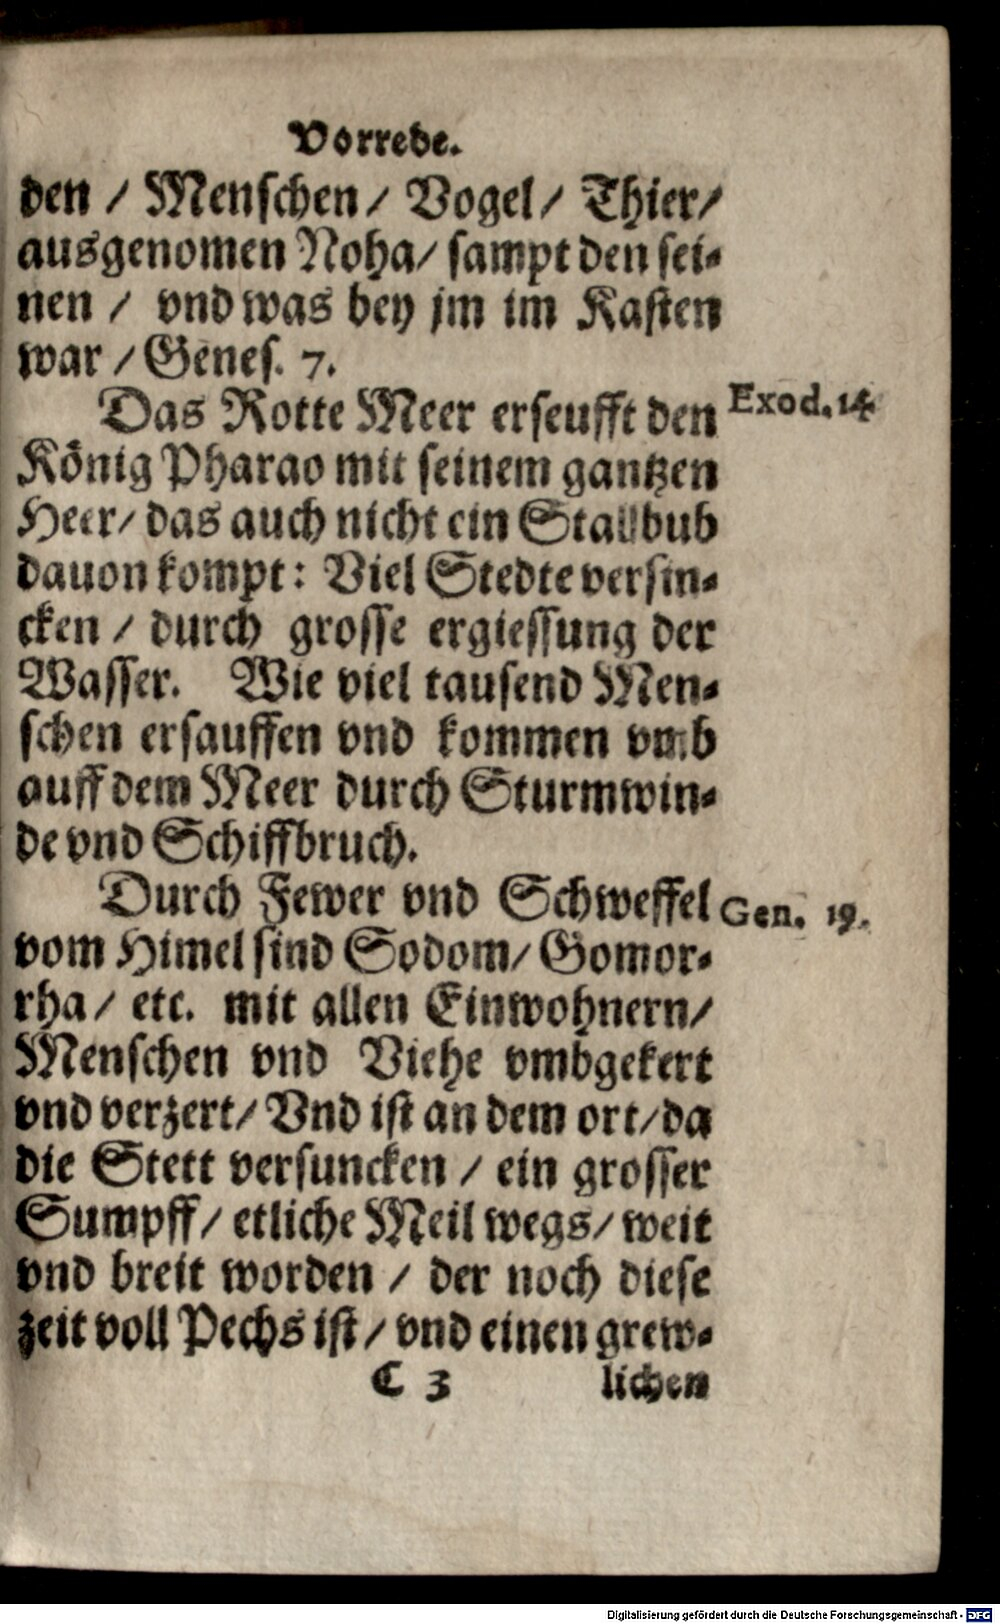 Vorrede.
den / Menschen / Vogel / Thier /
ausgenomen Noha / sampt den sei-
nen / vnd was bey jm im Kasten
war / Genes. 7.
Das Rotte Meer erseufft den
Exod. 14
König Pharao mit seinem gantzen
Heer / das auch nicht ein Stallbub
dauon kompt: Viel Stedte versin-
cken / durch grosse ergiessung der
Wasser. Wie viel tausend Men-
schen ersauffen vnd kommen vmb
auff dem Meer durch Sturmwin-
de vnd Schiffbruch.
Durch Fewer vnd Schweffel
Gen. 19.
vom Himel sind Sodom / Gomor-
rha / etc. mit allen Einwohnern /
Menschen vnd Viehe vmbgekert
vnd verzert / Vnd ist an dem ort / da
die Stett versuncken / ein grosser
Sumpff / etliche Meil wegs / weit
vnd breit worden / der noch diese
zeit voll Pechs ist / vnd einen grew-
C 3 lichen
Digitalisierung gefördert durch die Deutsche Forschungsgemeinschaft - DFG